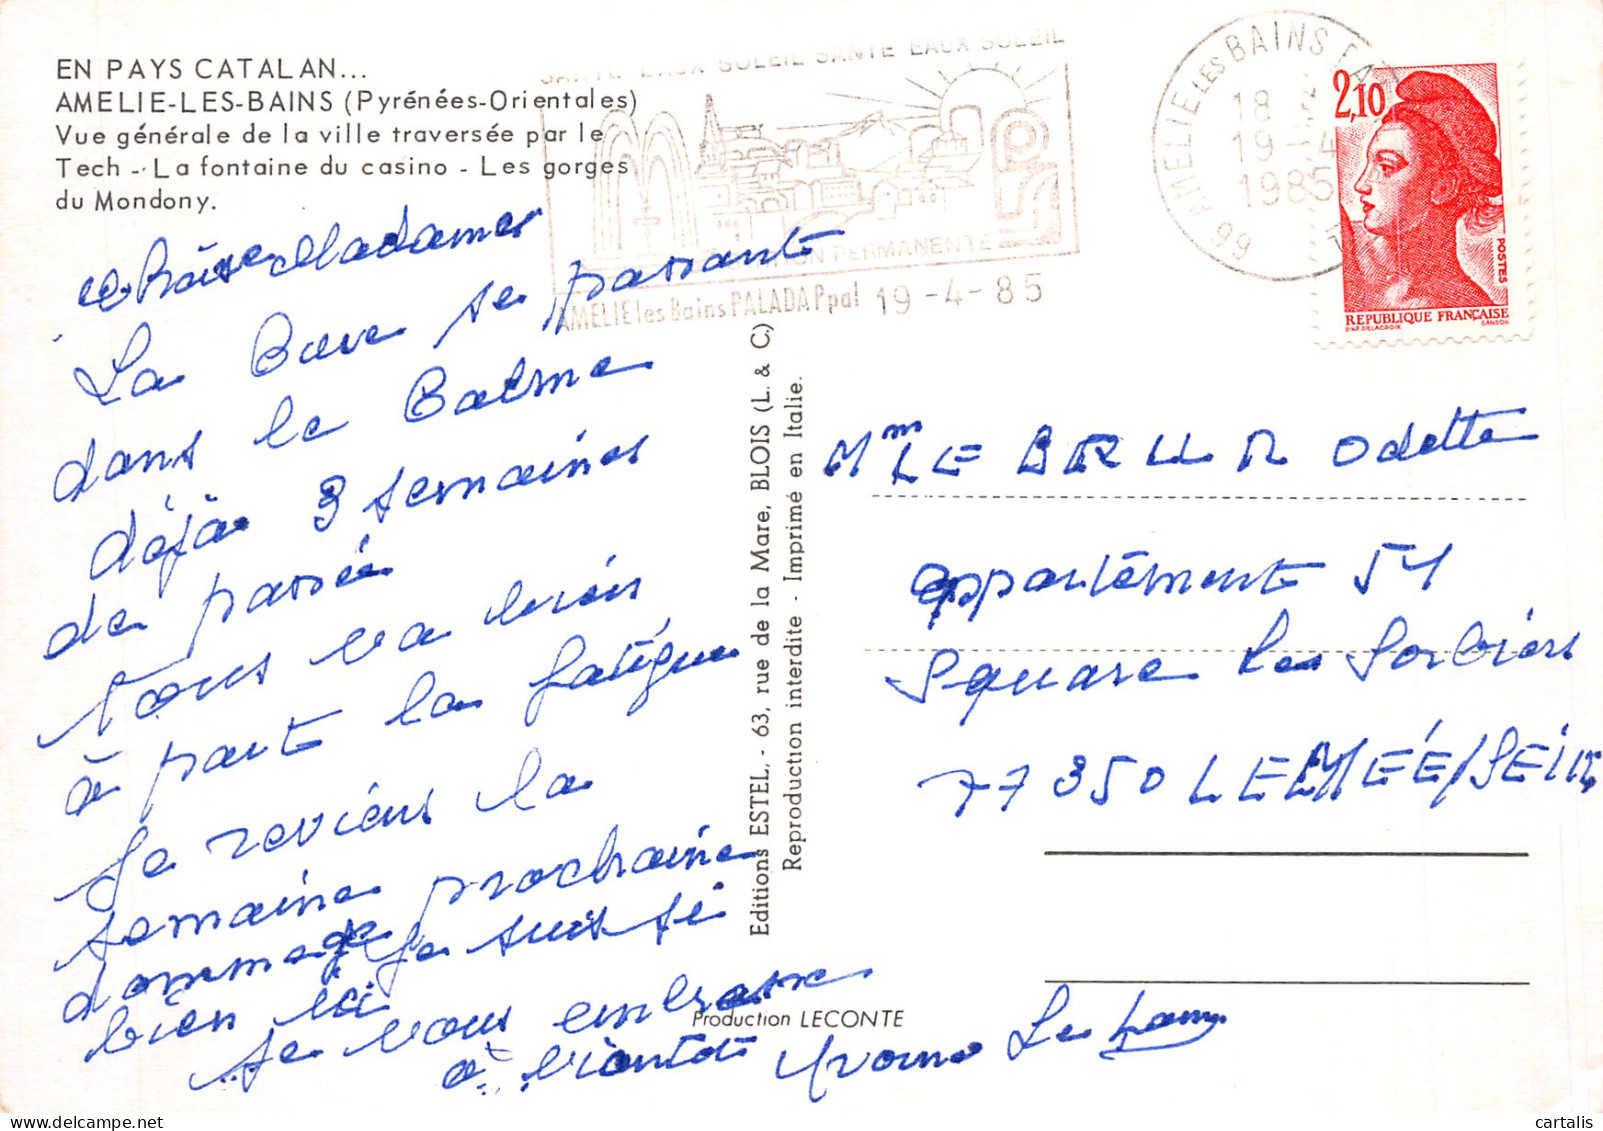 EN PAYS CATALAN...
AMELIE-LES-BAINS (Pyrénées-Orientales)
Vue générale de la ville traversée par le
Tech - La fontaine du casino - Les gorges
du Mondony.
SANTE EAUX SOLEIL SANTE EAUX SOLEIL
PERMANENTE
AMELIE les Bains PALADA Ppal 19-4-85
AMELIE LES BAINS
18
19-4
1985
66
2,10
POSTES
REPUBLIQUE FRANÇAISE
D'AP. DELACROIX GANDON
Madames
La Cure se passant
dans le Calme
déjà 3 semaines
de passée
tous va bien
à part la fatigue
Je reviens la
semaine prochaine
dommage Je suis si
bien ici
Je vous embrasse
à bientôt Yvonne
Editions ESTEL, - 63, rue de la Mare, BLOIS (L. & C.)
Reproduction interdite - Imprimé en Italie.
Production LECONTE
Mme LE BRUN Odette
appartément 54
Square les Sorbiers
77350 LE MÉE/SEINE